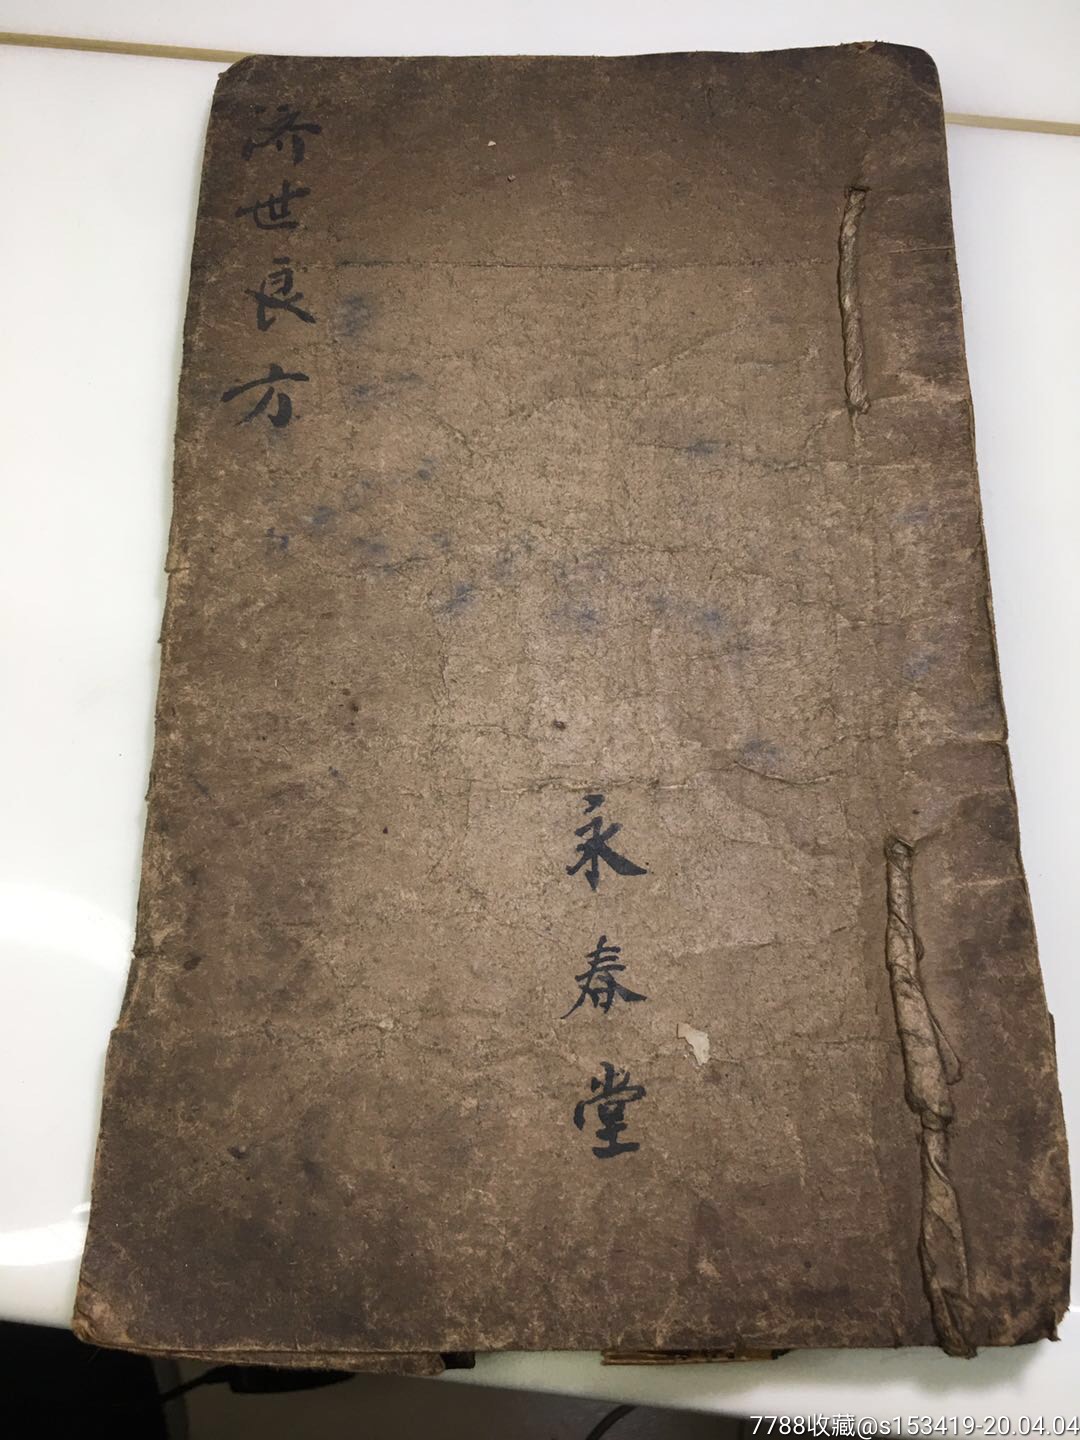 济世良方
永春堂
7788收藏@s153419-20.04.04